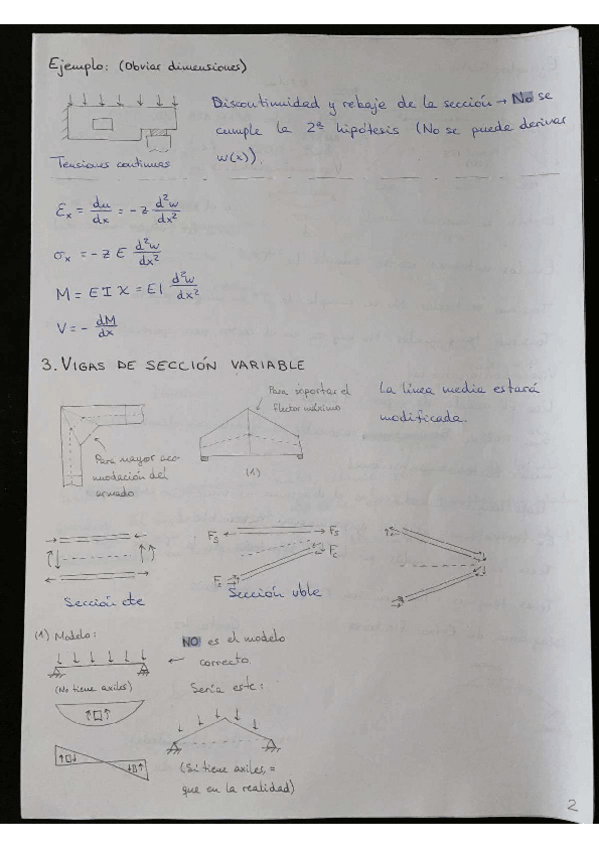 Ejemplo: (Obviar dimensiones)
Discontinuidad y rebaje de la sección → No se
cumple la 2ª hipótesis (No se puede derivar
w(x)).
Tensiones continuas
εx = du/dx = - z d²w/dx²
σx = - z E d²w/dx²
M = E I χ = EI d²w/dx²
V = - dM/dx
3. VIGAS DE SECCIÓN VARIABLE
Para soportar el
flector máximo
La línea media estará
modificada.
Para mayor aco-
modación del
armado
(1)
Fs Fs
Fc
Fc
Sección cte
Sección vble
(1) Modelo:
NO es el modelo
correcto.
(No tiene axiles)
Sería este:
(Sí tiene axiles, =
que en la realidad)
2